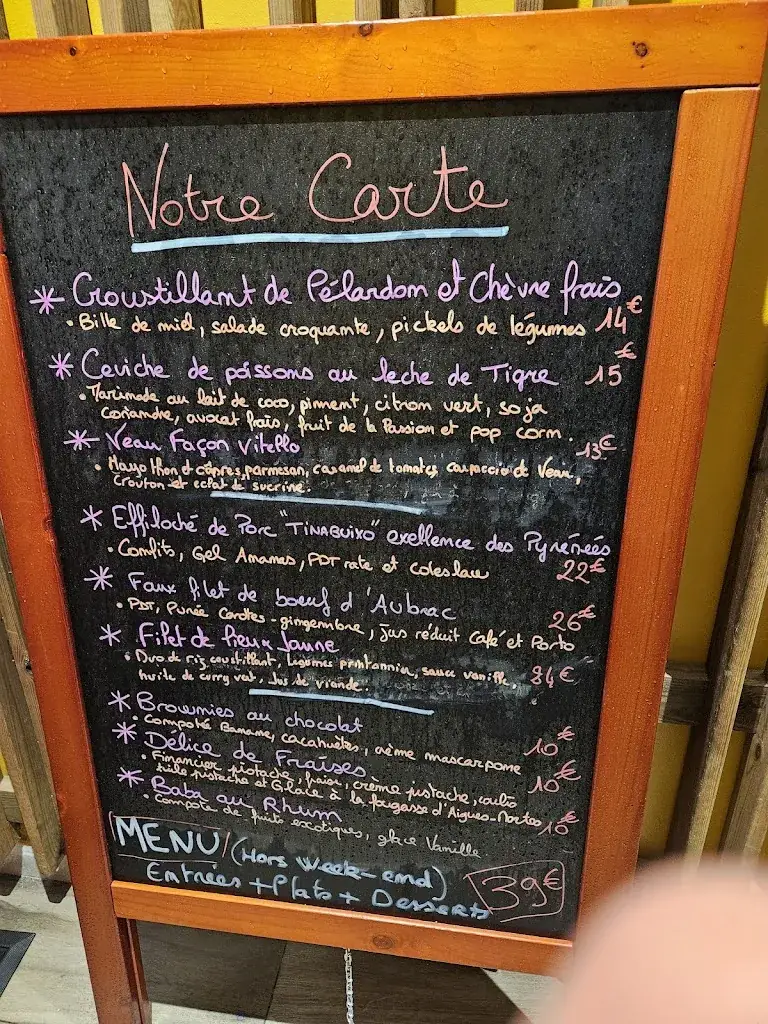 Notre Carte
* Croustillant de Pélardon et Chèvre frais
• Bille de miel, salade croquante, pickels de légumes 14€
* Ceviche de poissons au leche de Tigre 15€
• Marinade au lait de coco, piment, citron vert, soja
coriandre, avocat frais, fruit de la Passion et pop corn.
* Veau Façon Vitello 13€
• Mayo thon et câpres, parmesan, caramel de tomates, carpaccio de Veau,
crouton et eclat de sucrine.
* Effiloché de Porc "TINABUIXO" exellence des Pyrénées
• Confits, Gel Ananas, PDT rate et coleslaw 22€
* Faux filet de boeuf d'Aubrac 26€
• PDT, Purée Carottes-gingembre, jus réduit Café et Porto
* Filet de lieu Jaune
• Duo de riz croustillant, Légumes printannier, sauce vanille, 24€
huile de curry vert, Jus de viande.
* Brownies au chocolat
• Compoté Banane, cacahuètes, crème mascarpone 10€
* Délice de Fraises 10€
• Financier pistache, fraise, crème pistache, coulis
tuile pistache et Glace à la fougasse d'Aigues-Mortes
* Baba au Rhum 10€
• compote de fruits exotiques, glace Vanille
MENU (Hors Week-end)
Entrées + Plats + Desserts 39€